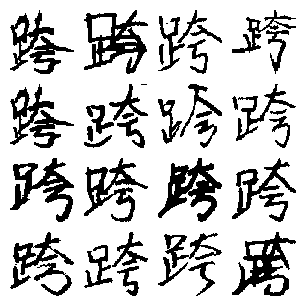 跨跨跨跨
跨跨跨跨
跨跨跨跨
跨跨跨跨